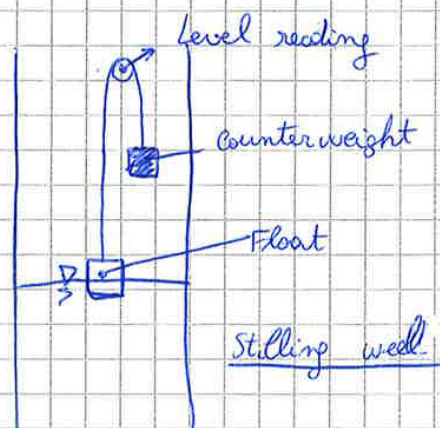 Level reading
Counterweight
Float
Stilling well